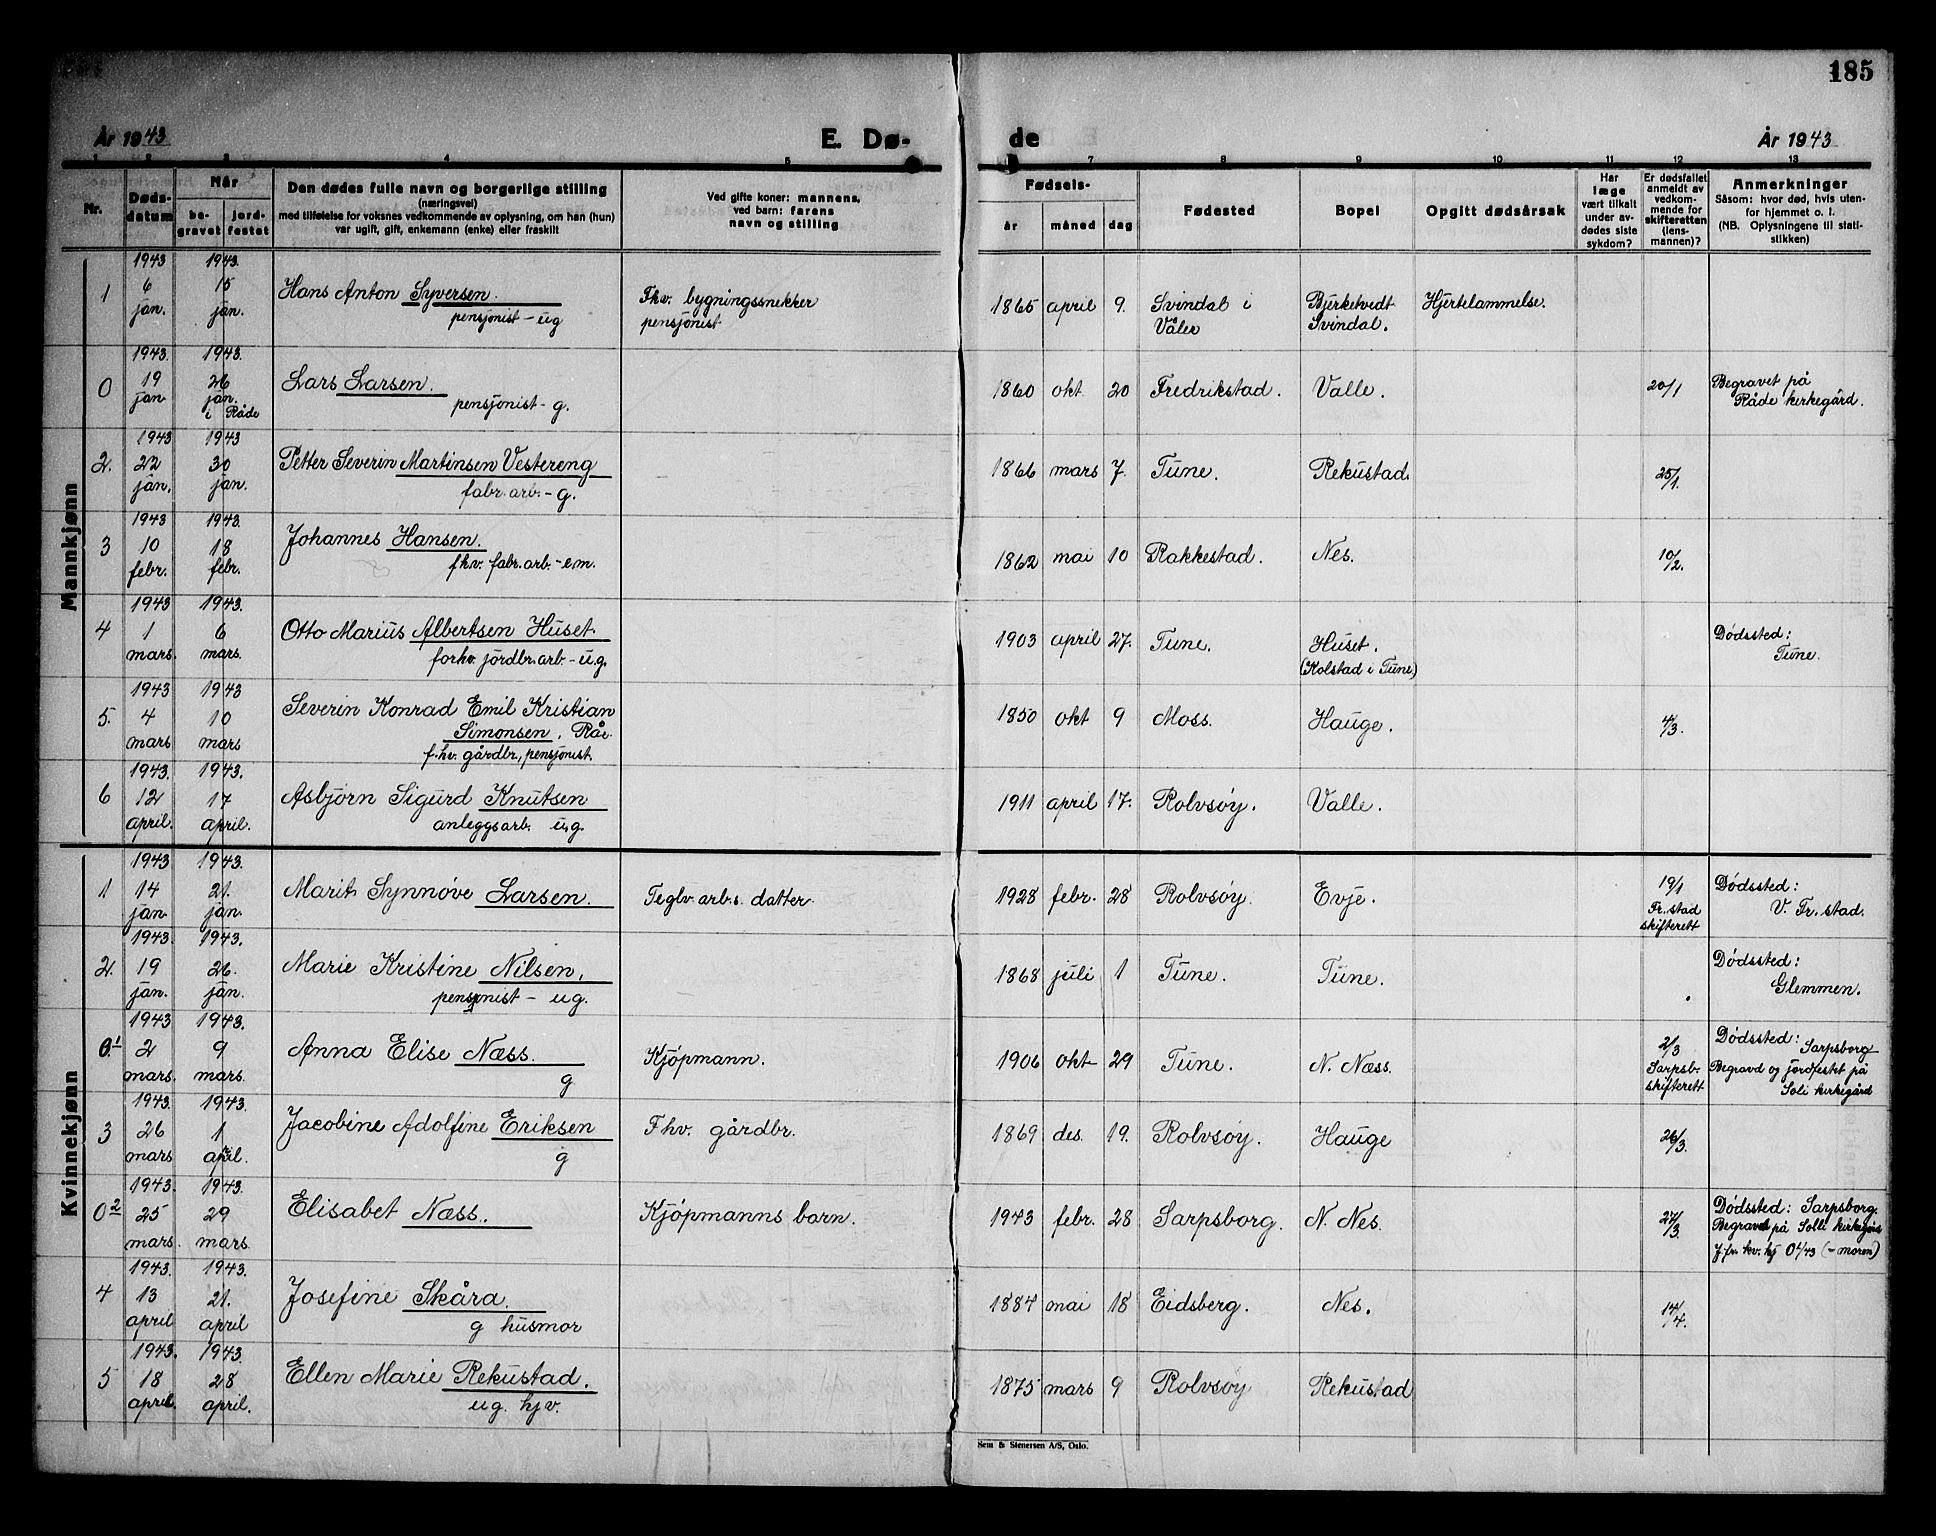 185
År 1943
E. Dø-
de
År 1943
1 2 3 4 5 7 8 9 10 11 12 13
Nr.
Døds-
datum
Når
be-
gravet
jord-
festet
Den dødes fulle navn og borgerlige stilling
(næringsvei)
med tilføielse for voksnes vedkommende av oplysning, om han (hun)
var ugift, gift, enkemann (enke) eller fraskilt
Ved gifte koner: mannens,
ved barn: farens
navn og stilling
Fødsels-
år måned dag
Fødested
Bopel
Opgitt dødsårsak
Har
læge
vært tilkalt
under av-
dødes siste
sykdom?
Er dødsfallet
anmeldt av
vedkom-
mende for
skifteretten
(lens-
mannen)?
Anmerkninger
Såsom: hvor død, hvis uten-
for hjemmet o. l.
(NB. Oplysningene til stati-
stikken)
Mannkjønn
1943 1943.
1 6 jan. 15 jan. Hans Anton Syversen. Fhv. bygningssnekker 1865 april 9. Svindal i Bjerketvedt Hjertelammelse.
pensjonist - ug pensjonist Våler Svindal.
1943. 1943.
0 19 jan. 26 jan. Lars Larsen. 1860 okt. 20 Fredrikstad. Valle. 20/1 Begravet på
i Råde pensjonist - g. Råde kirkegård.
1943 1943
2. 22 jan. 30 jan. Petter Severin Martinsen Vestereng 1866 mars 7. Tune. Rekustad. 25/1.
fabr. arb. - g.
1943 1943.
3 10 febr. 18 febr. Johannes Hansen. 1862 mai 10 Rakkestad. Nes. 10/2.
fhv. fabr. arb. - em.
1943 1943.
4 1 mars. 6 mars. Otto Marius Albertsen Huset. 1903 april 27. Tune. Huset. Dødssted:
forhv. jordbr. arb. - ug. (Kolstad i Tune) Tune.
1943 1943
5. 4 mars 10 mars Severin Konrad Emil Kristian 1850 okt 9 Moss. Hauge. 4/3.
Simonsen, Råe.
f.hv. gårdbr., pensjonist.
1943. 1943.
6 12 april. 17 april. Asbjørn Sigurd Knutsen 1911 april 17. Rolvsøy. Valle.
anleggsarb. ug.
Kvinnekjønn
1943 1943.
1 14 jan. 21. jan. Marit Synnøve Larsen. Teglv. arb.s. datter. 1928 febr. 28 Rolvsøy. Evje. 19/1 Dødssted:
Fr. stad V. Fr. stad.
skifterett
1943. 1943.
2. 19 jan. 26. jan. Marie Kristine Nilsen, 1868 juli 1 Tune. Tune. Dødssted:
pensjonist - ug. Glemmen.
1943 1943.
0.1 2 mars. 9 mars. Anna Elise Næss. Kjøpmann. 1906 okt 29 Tune. N. Næss. 2/3 Dødssted: Sarpsborg
g Sarpsb. Begravd og jordfestet på
skifterett Soli kirkegård
1943. 1943.
3 26 mars 1 april. Jacobine Adolfine Eriksen Fhv. gårdbr. 1869 des. 19. Rolvsøy. Hauge 26/3.
g
1943. 1943.
02 25 mars. 29 mars. Elisabet Næss. Kjøpmanns barn. 1943 febr. 28 Sarpsborg. N. Nes. 27/3. Dødssted: Sarpsborg.
Begravd på Solli kirkegård
J.fr. kv. kj 01/43 (- moren)
1943. 1943.
4 13 april 21. april Josefine Skåra. 1884 mai 18 Eidsberg. Nes. 14/4.
g husmor
1943. 1943.
5 18 april. 28 april. Ellen Marie Rekustad. 1875 mars 9 Rolvsøy Rekustad
ug. hjv.
Sem & Stenersen A/S, Oslo.